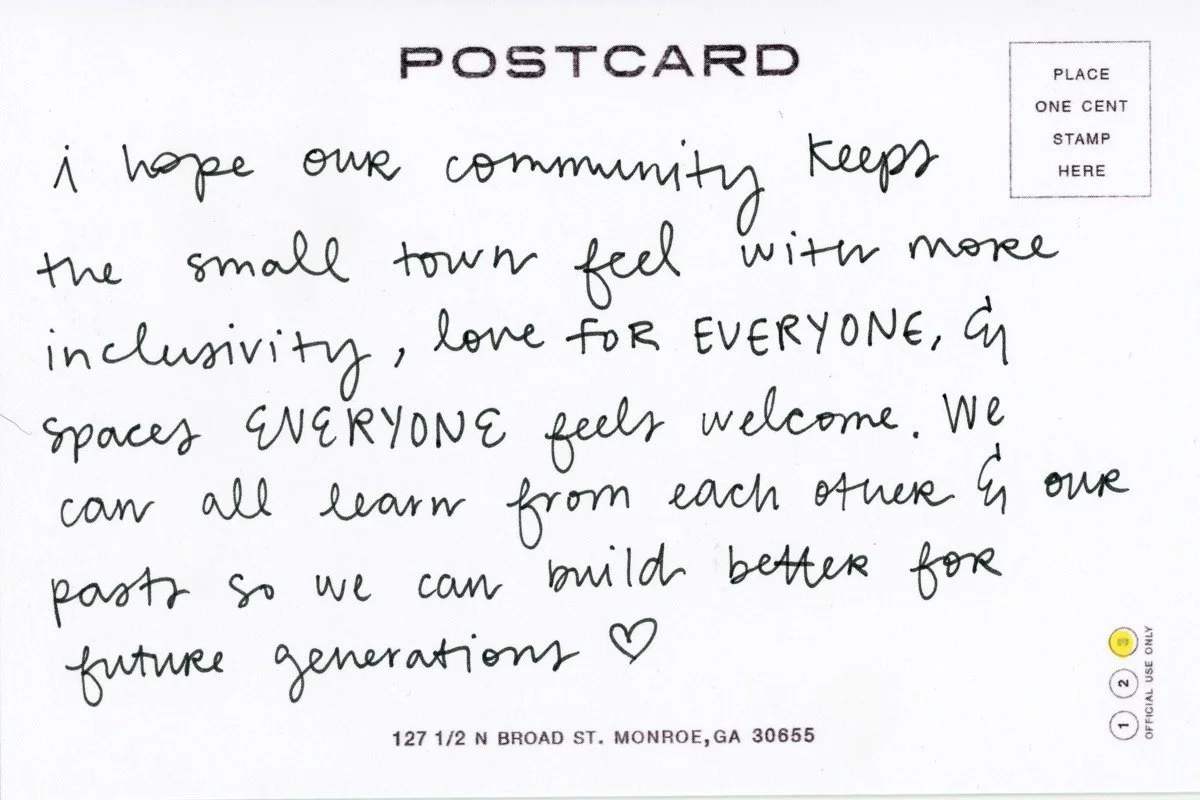 POSTCARD
PLACE
ONE CENT
STAMP
HERE
i hope our community keeps
the small town feel with more
inclusivity, love FOR EVERYONE, &
spaces EVERYONE feels welcome. We
can all learn from each other & our
pasts so we can build better for
future generations ♡
127 1/2 N BROAD ST. MONROE, GA 30655
1 2 3
OFFICIAL USE ONLY